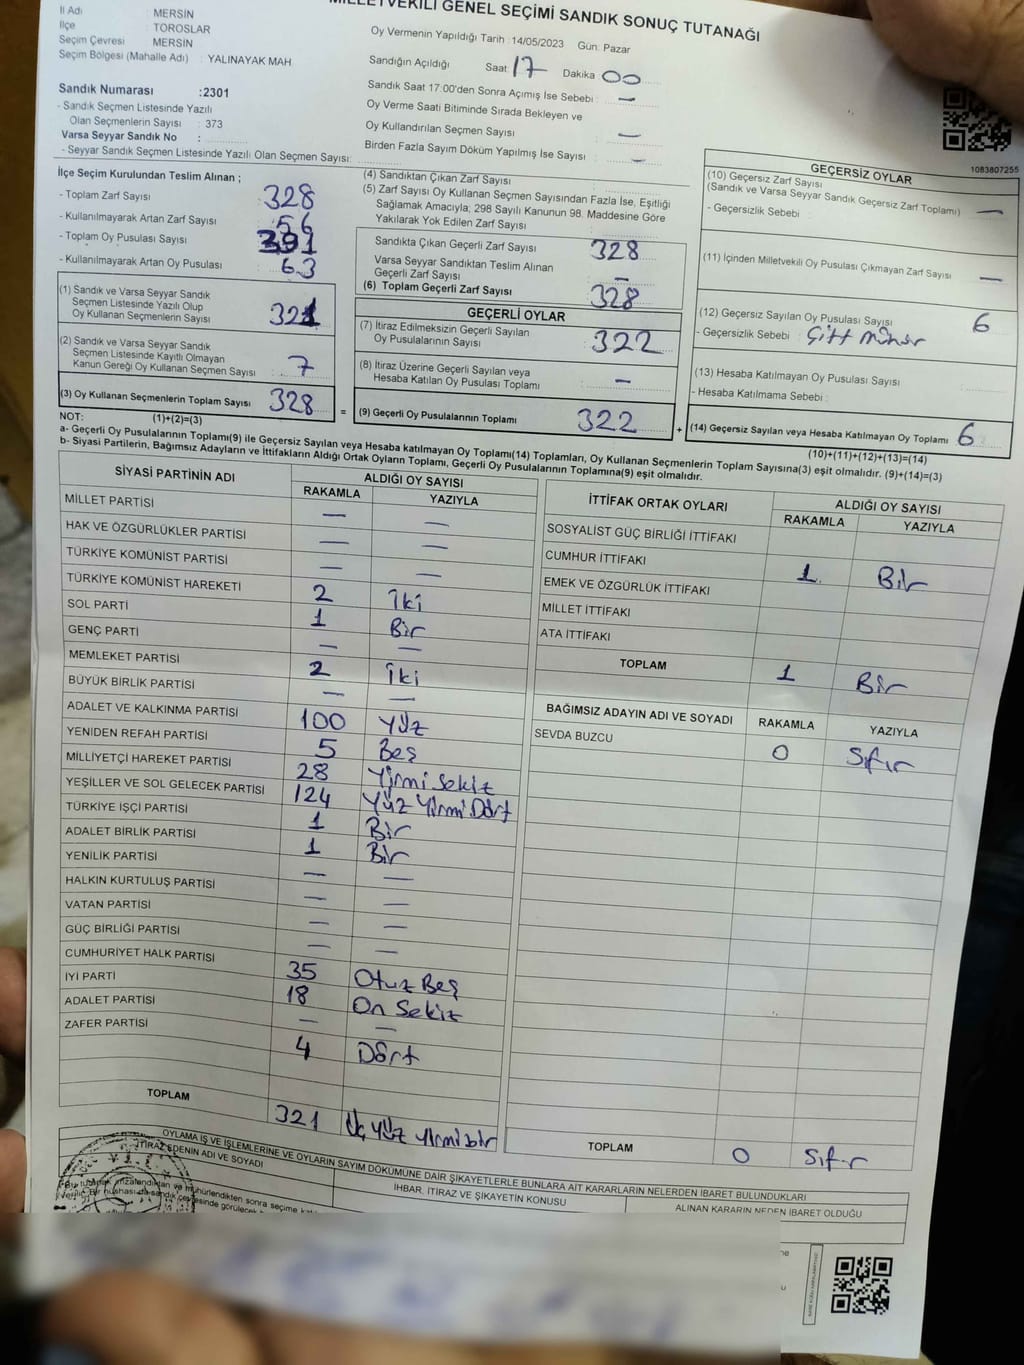 MİLLETVEKİLİ GENEL SEÇİMİ SANDIK SONUÇ TUTANAĞI
İl Adı : MERSİN
İlçe : TOROSLAR
Seçim Çevresi : MERSİN
Seçim Bölgesi (Mahalle Adı) : YALINAYAK MAH
Sandık Numarası :2301
- Sandık Seçmen Listesinde Yazılı
Olan Seçmenlerin Sayısı : 373
Varsa Seyyar Sandık No :
- Seyyar Sandık Seçmen Listesinde Yazılı Olan Seçmen Sayısı:
Oy Vermenin Yapıldığı Tarih :14/05/2023 Gün: Pazar
Sandığın Açıldığı Saat: 17 Dakika : 00
Sandık Saat 17:00'den Sonra Açımış İse Sebebi : —
Oy Verme Saati Bitiminde Sırada Bekleyen ve
Oy Kullandırılan Seçmen Sayısı : —
Birden Fazla Sayım Döküm Yapılmış İse Sayısı : —
İlçe Seçim Kurulundan Teslim Alınan ;
- Toplam Zarf Sayısı : 328
- Kullanılmayarak Artan Zarf Sayısı : 56
- Toplam Oy Pusulası Sayısı : 391
- Kullanılmayarak Artan Oy Pusulası : 63
(1) Sandık ve Varsa Seyyar Sandık
Seçmen Listesinde Yazılı Olup
Oy Kullanan Seçmenlerin Sayısı : 321
(2) Sandık ve Varsa Seyyar Sandık
Seçmen Listesinde Kayıtlı Olmayan
Kanun Gereği Oy Kullanan Seçmen Sayısı : 7
(3) Oy Kullanan Seçmenlerin Toplam Sayısı : 328
(4) Sandıktan Çıkan Zarf Sayısı :
(5) Zarf Sayısı Oy Kullanan Seçmen Sayısından Fazla İse, Eşitliği
Sağlamak Amacıyla, 298 Sayılı Kanunun 98. Maddesine Göre
Yakılarak Yok Edilen Zarf Sayısı :
Sandıkta Çıkan Geçerli Zarf Sayısı : 328
Varsa Seyyar Sandıktan Teslim Alınan
Geçerli Zarf Sayısı : —
(6) Toplam Geçerli Zarf Sayısı : 328
GEÇERLİ OYLAR
(7) İtiraz Edilmeksizin Geçerli Sayılan
Oy Pusulalarının Sayısı : 322
(8) İtiraz Üzerine Geçerli Sayılan veya
Hesaba Katılan Oy Pusulası Toplamı : —
= (9) Geçerli Oy Pusulalarının Toplamı : 322
1083807255
GEÇERSİZ OYLAR
(10) Geçersiz Zarf Sayısı
(Sandık ve Varsa Seyyar Sandık Geçersiz Zarf Toplamı) : —
- Geçersizlik Sebebi :
(11) İçinden Milletvekili Oy Pusulası Çıkmayan Zarf Sayısı : —
(12) Geçersiz Sayılan Oy Pusulası Sayısı : 6
- Geçersizlik Sebebi : Çift Mühür
(13) Hesaba Katılmayan Oy Pusulası Sayısı :
- Hesaba Katılmama Sebebi :
+ (14) Geçersiz Sayılan veya Hesaba Katılmayan Oy Toplamı : 6
NOT: (1)+(2)=(3)
(10)+(11)+(12)+(13)=(14)
a- Geçerli Oy Pusulalarının Toplamı(9) ile Geçersiz Sayılan veya Hesaba katılmayan Oy Toplamı(14) Toplamları, Oy Kullanan Seçmenlerin Toplam Sayısına(3) eşit olmalıdır. (9)+(14)=(3)
b- Siyasi Partilerin, Bağımsız Adayların ve İttifakların Aldığı Ortak Oyların Toplamı, Geçerli Oy Pusulalarının Toplamına(9) eşit olmalıdır.
SİYASİ PARTİNİN ADI ALDIĞI OY SAYISI
RAKAMLA YAZIYLA
MİLLET PARTİSİ — —
HAK VE ÖZGÜRLÜKLER PARTİSİ — —
TÜRKİYE KOMÜNİST PARTİSİ — —
TÜRKİYE KOMÜNİST HAREKETİ 2 İki
SOL PARTİ 1 Bir
GENÇ PARTİ — —
MEMLEKET PARTİSİ 2 İki
BÜYÜK BİRLİK PARTİSİ — —
ADALET VE KALKINMA PARTİSİ 100 Yüz
YENİDEN REFAH PARTİSİ 5 Beş
MİLLİYETÇİ HAREKET PARTİSİ 28 Yirmi Sekiz
YEŞİLLER VE SOL GELECEK PARTİSİ 124 Yüz Yirmi Dört
TÜRKİYE İŞÇİ PARTİSİ 1 Bir
ADALET BİRLİK PARTİSİ 1 Bir
YENİLİK PARTİSİ — —
HALKIN KURTULUŞ PARTİSİ — —
VATAN PARTİSİ — —
GÜÇ BİRLİĞİ PARTİSİ — —
CUMHURİYET HALK PARTİSİ 35 Otuz Beş
İYİ PARTİ 18 On Sekiz
ADALET PARTİSİ — —
ZAFER PARTİSİ 4 Dört
TOPLAM 321 Üç Yüz Yirmi bir
İTTİFAK ORTAK OYLARI ALDIĞI OY SAYISI
RAKAMLA YAZIYLA
SOSYALİST GÜÇ BİRLİĞİ İTTİFAKI
CUMHUR İTTİFAKI 1 Bir
EMEK VE ÖZGÜRLÜK İTTİFAKI
MİLLET İTTİFAKI
ATA İTTİFAKI
TOPLAM 1 Bir
BAĞIMSIZ ADAYIN ADI VE SOYADI RAKAMLA YAZIYLA
SEVDA BUZCU 0 Sıfır
TOPLAM 0 Sıfır
OYLAMA İŞ VE İŞLEMLERİNE VE OYLARIN SAYIM DÖKÜMÜNE DAİR ŞİKAYETLERLE BUNLARA AİT KARARLARIN NELERDEN İBARET BULUNDUKLARI
İTİRAZ EDENİN ADI VE SOYADI
İHBAR, İTİRAZ VE ŞİKAYETİN KONUSU
ALINAN KARARIN NEDEN İBARET OLDUĞU